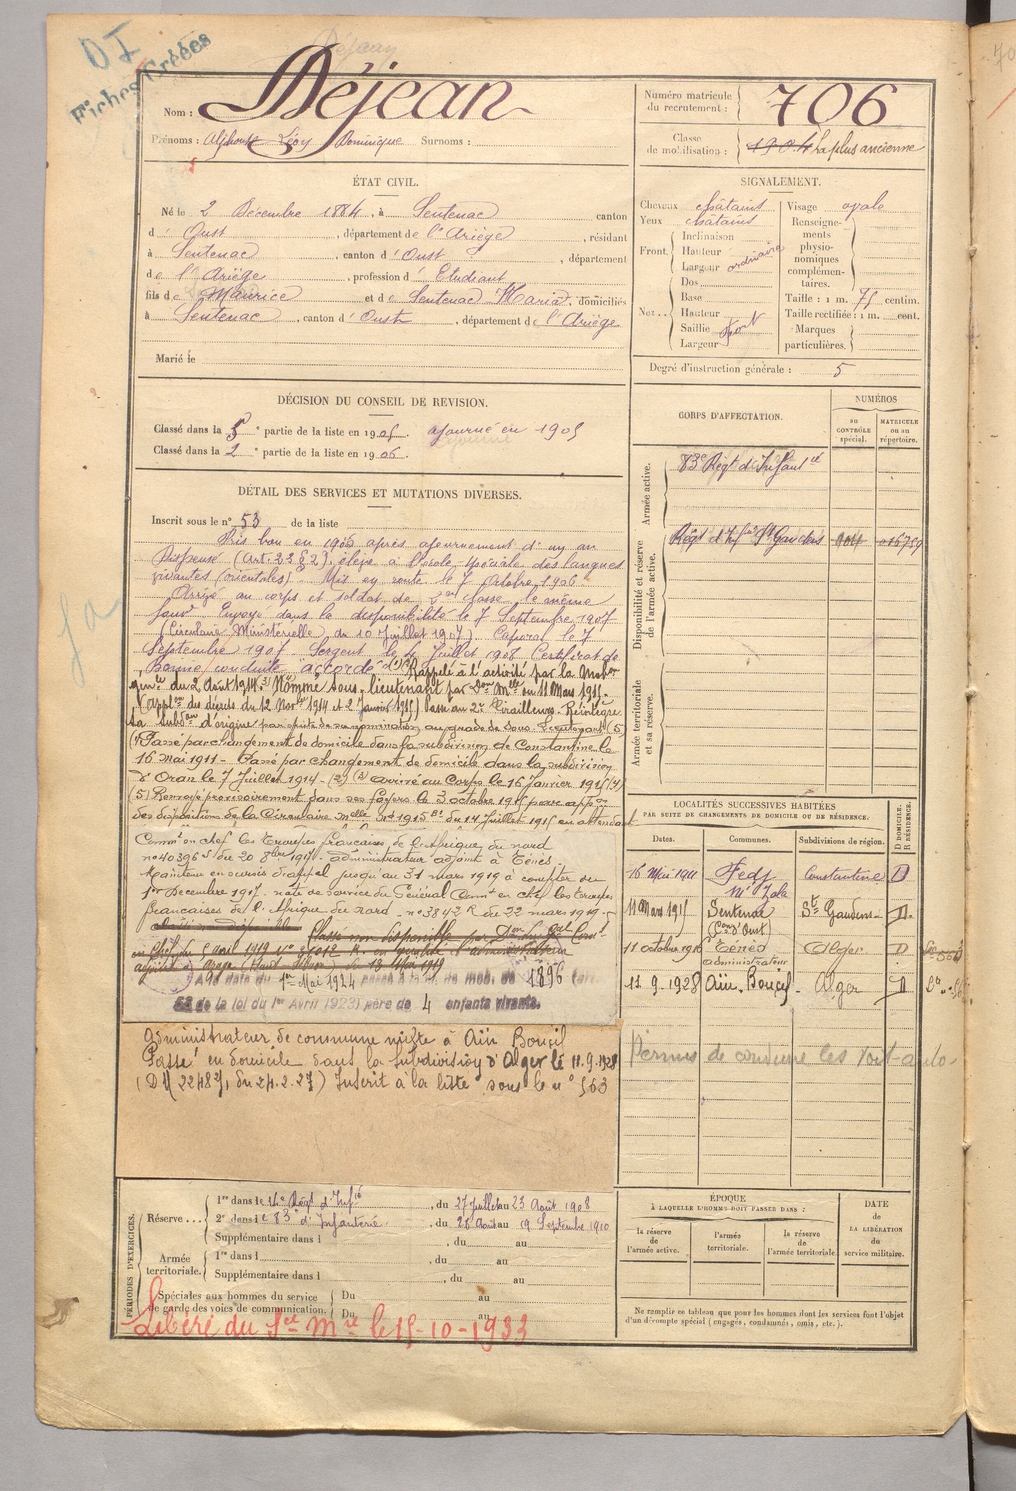 DI
Fiches Créées
Nom : Déjean
Prénoms : Alphonse Léon Dominique Surnoms :
Numéro matricule du recrutement : 706
Classe de mobilisation : 1904 La plus ancienne
ÉTAT CIVIL.
Né le 2 Décembre 1884, à Sentenac canton
d'Oust, département de l'Ariège, résidant
à Sentenac, canton d'Oust, département
de l'Ariège, profession d'Etudiant
fils de Maurice et de Sentenac Maria, domiciliés
à Sentenac, canton d'Oust, département de l'Ariège
Marié le
SIGNALEMENT.
Cheveux châtains
Yeux châtains
Front. Inclinaison
Hauteur
Largeur ordinaire
Nez. Dos
Base
Hauteur
Saillie fort
Largeur
Visage ovale
Renseignements physionomiques complémentaires.
Taille : 1 m. 75 centim.
Taille rectifiée : 1 m. cent.
Marques particulières.
Degré d'instruction générale : 5
DÉCISION DU CONSEIL DE REVISION.
Classé dans la 5e partie de la liste en 1905. ajourné en 1905
Classé dans la 2e partie de la liste en 1906.
DÉTAIL DES SERVICES ET MUTATIONS DIVERSES.
Inscrit sous le n° 53 de la liste
Pris bon en 1906 après ajournement d'un an
Dispensé (Art. 23 § 2) élève à l'école spéciale des langues
vivantes (orientales). Mis en route le 7 Octobre 1906
Arrivé au corps et soldat de 2e classe le même
jour. Envoyé dans la disponibilité le 7 Septembre 1907
(Circulaire Ministérielle du 10 Juillet 1907). Caporal le 7
Septembre 1907. Sergent le 4 Juillet 1908 Certificat de
Bonne conduite "accordé" Rappelé à l'activité par la Mobon
génle du 2 Août 1914. Nommé sous-lieutenant par Don Mlle du 11 Mars 1915.
(Applon des décrets du 12 Novbre 1914 et 2 Janvier 1915) Passé au 2e Tirailleurs. Réintègre
sa Subdon d'origine par suite de sa nomination au grade de Sous-Lieutenant (5)
Passé par changement de domicile dans la subdivision de Constantine le
16 Mai 1911 - Passé par changement de domicile dans la subdivision
d'Oran le 7 Juillet 1914 - (2) (3) arrivé au Corps le 16 Janvier 1915 (4)
(5) Renvoyé provisoirement dans ses foyers le 3 octobre 1915 par appon
des dispositions de la Circulaire Melle du 14 Juillet 1915 en attendant
Commt en chef les troupes françaises de l'Afrique du nord
n° 40396 S du 20 8bre 1917. administrateur adjoint à Ténès.
Maintenu en sursis d'appel jusqu'au 31 mars 1919 à compter du
1er Décembre 1917. note de service du Général Commt en chef les troupes
françaises de l'Afrique du nord - n° 3842 R du 22 mars 1919
Classé non disponible
A la date du 1er Mai 1924 passé à la cl. de mob. de 1896 (art.
52 de la loi du 1er Avril 1923) père de 4 enfants vivants.
Administrateur de commune mixte à Aïn Boucif
Passé en domicile dans la subdivision d'Alger le 11.9.1928
(DM 22487, du 24.2.27) Inscrit à la liste sous le n° 563
CORPS D'AFFECTATION.
NUMÉROS
au contrôle spécial.
matricule ou au répertoire.
Armée active.
83e Régt d'Infantie
Disponibilité et réserve de l'armée active.
Régt d'Infie St Gaudens
Armée territoriale et sa réserve.
LOCALITÉS SUCCESSIVES HABITÉES
PAR SUITE DE CHANGEMENTS DE DOMICILE OU DE RÉSIDENCE.
Dates. Communes. Subdivisions de région. D DOMICILE. R RÉSIDENCE.
16 Mai 1911 Fedj M'Zala Constantine D
11 Mars 1915 Sentenac (Con d'Oust) St Gaudens D
11 octobre 1916 Ténès administrateur Alger D
11.9.1928 Aïn Boucif Alger D
Permis de conduire les voit-auto
PÉRIODES D'EXERCICES.
Réserve... 1re dans le 14e Régt d'Infie, du 27 Juillet au 23 Août 1908
2e dans le 83e d'Infanterie, du 28 Août au 19 Septembre 1910
Supplémentaire dans l , du au
Armée territoriale. 1re dans l , du au
Supplémentaire dans l , du au
Spéciales aux hommes du service de garde des voies de communication. Du au
Du au
Libéré du Sce Mre le 15-10-1933
ÉPOQUE
À LAQUELLE L'HOMME DOIT PASSER DANS :
la réserve de l'armée active.
l'armée territoriale.
la réserve de l'armée territoriale.
DATE de LA LIBÉRATION du service militaire.
Ne remplir ce tableau que pour les hommes dont les services font l'objet
d'un décompte spécial (engagés, condamnés, omis, etc.).